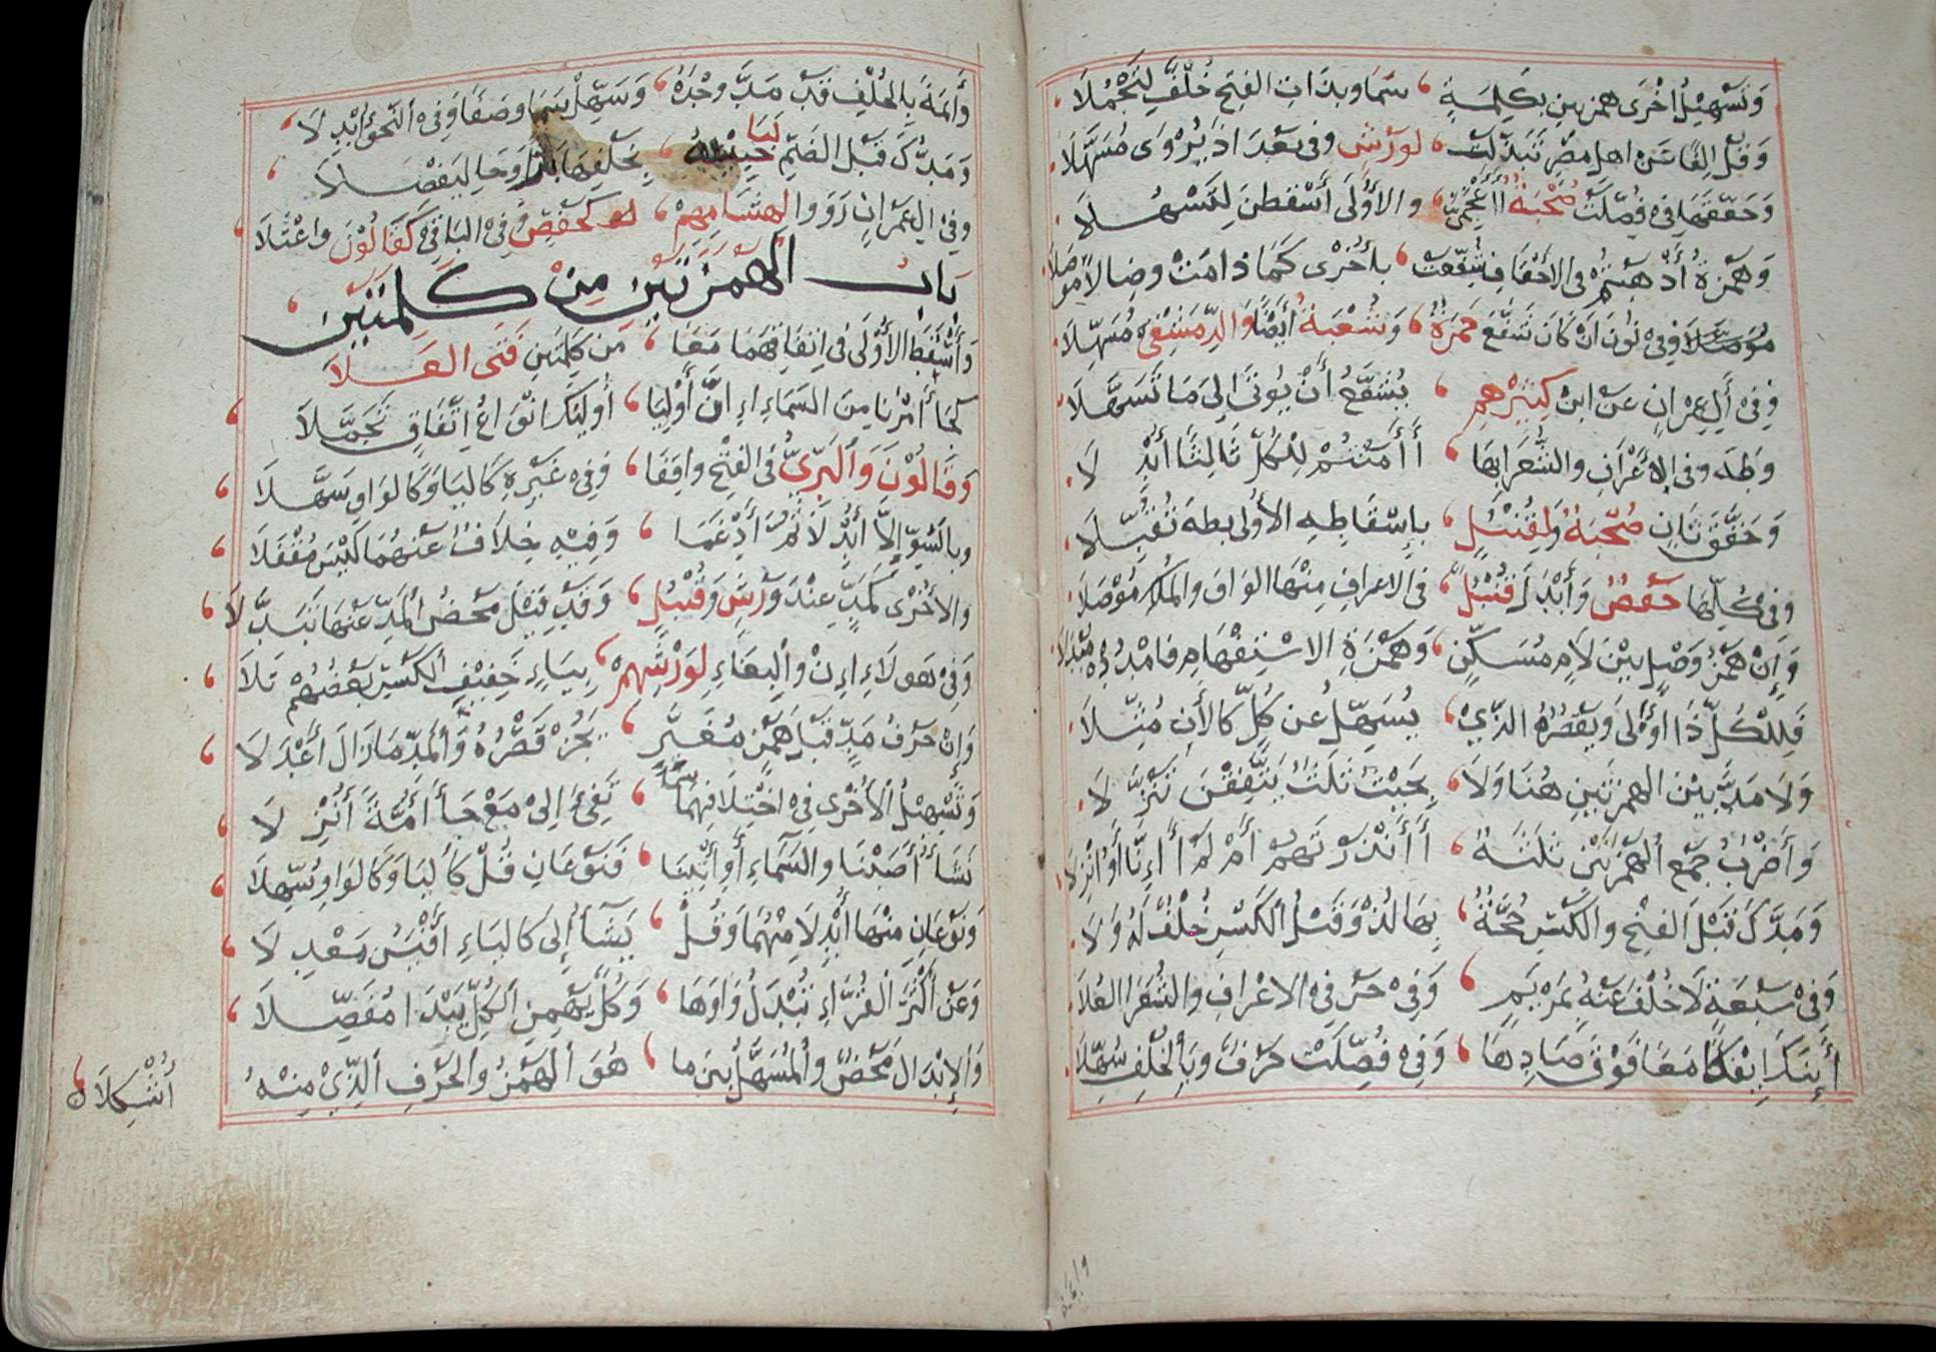 وَتَسْهِيلُ اخْرَى همزتين بكِلِمَةٍ ، سَمَا وبذات الفتح خُلْفٌ لِتَجْمُلَا
وَقُلْ اَلِفًا عَنْ اهل مصْر تَبَدَّلَتْ ، لورش وفى بَغْدَاذ يُرْوَى مُسَهَّلَا
وَحَقَّقَهَا فى فُصِّلَتْ صُحْبَةٌ أَأَعْجَمِيٌّ ، والاُوْلَى أَسْقِطَنَّ لِتَسْهُلَا
وَهَمْزَةُ أَذْهَبْتُمْ فى الاحْقَافِ شُفِّعَتْ ، بأُخْرَى كَمَا دَامَتْ وِصَالاً مُوَصَّلَا
وَفِى نُونَ اَنْ كَانَ شَفَّعَ حَمْزَةٌ ، وَشُعْبَةُ أَيْضًا وَالدِّمَشْقِى مُسَهِّلَا
وَفِى أَلِ عِمْرَانٍ عَنِ ابْنِ كَثِيْرِهِم ، يُشَفَّعُ أَنْ يُؤْتَى إِلَى مَا تَسَهَّلَا
وَطٰهَ وفى الاعْرَافِ والشُّعَرَا بِهَا ، أَأَمَنْتُمْ لِلْكُلِّ ثَالِثًا أُبْدِلَا
وَحَقَّقَ ثَانٍ صُحْبَةٌ وَلِقُنْبُلٍ ، بِإِسْقَاطِهِ الأُولى بطه تُقُبِّلَا
وَفى كُلِّهَا حَفْصٌ وَأَبْدَلَ قُنْبُلٌ ، فى الاعرافِ مِنْهَا الوَاوَ والمُلْكِ مُوْصِلَا
وَإِنْ هَمْزُ وَصْلٍ بَيْنَ لَامٍ مُسَكَّنٍ ، وَهَمْزَةِ الاسْتِفْهَامِ فامْدُدْهُ مُبْدِلَا
فَلِلْكُلِّ ذَا اَوْلَى وَيَقْصُرُهُ الَّذِيْ ، يُسَهِّلُ عَنْ كُلٍّ كَالأنَ مُثِّلَا
وَلَا مَدَّ بَيْنَ الهمزتَينِ هُنَا وَلَا ، بِحَيْثُ ثَلَثٌ يَتَّفِقْنَ تَنَزُّلَا
وَأَضْرُبُ جَمْعِ الهَمْزَتَيْنِ ثَلَثَةٌ ، أَأَنْذَرْتَهُمْ أَمْ لَمْ أَإِنَّا أَؤُنْزِلَا
وَمَدُّكَ قَبْلَ الفَتْحِ والكَسْرِ حُجَّةٌ ، بِهَا لُذْ وَقَبْلَ الكَسْرِ خُلْفٌ لَهُ وَلَا
وَفِى سَبْعَةٍ لَا خُلْفَ عَنْهُ بِمَرْيَمٍ ، وَفِى حَرْفَى الاعْرَافِ والشُّعَرَا العُلَا
أَئِنَّكَ اَئِفْكًا مَعَا فَوْقَ صَادِهَا ، وَفِى فُصِّلَتْ حَرْفٌ وَبِالخُلْفِ سُهِّلَا
وَأَئِمَةً بِالخُلْفِ قَدْ مَدَّ وحْدَهُ ، وَسَهِّلْ سَمَا وصفًا وَفِى النَّحْوِ أُبْدِلَا
وَمَدُّكَ قَبْلَ الضَّمِّ لَبَّا حَبِيْبُهُ ، بِخُلْفِهِمَا بَرًّا وَجَا لِيَفْصِلَا
وفى الِ عِمْرَانٍ رَوَوا لِهِشَامِهِمْ ، كَحَفْصٍ وَفِى البَاقِى كَقَالُوْنَ وَاعْتَلَا
بَابُ الهَمْزَتَيْنِ مِنْ كَلِمَتَيْنِ
وَأَسْقَطَ الاُوْلَى فى اتِّفَاقِهِمَا مَعًا ، مَن كِلْمَتَيْنِ فَتَى العَلَا
كَجَا أَمْرُنَا مِنَ السَّمَاءِ إِنَّ أَوْلِيَا ، أُولَئِكَ انْوَاعُ اتِّفَاقٍ تَجَمَّلَا
وَقَالُوْنَ وَالبَزِّيُّ فى الفَتْحِ وافَقَا ، وَفِى غَيْرِهِ كَاليَا وَكَالوَاوِ سَهَّلَا
وبالسُّوْءِ إِلَّا أَبْدَلَا ثُمَّ أَدْغَمَا ، وَفِيْهِ خِلَافٌ عَنْهُمَا لَيْسَ مُقْفَلَا
والاُخْرَى كَمَدٍّ عِنْدَ وَرْشٍ وَقُنْبُلٍ ، وَقَدْ قِيْلَ مَحْضُ المَدِّ عَنْهَا تَبَدَّلَا
وَفِى هؤلَاءِ اِنْ وَالبِغَاءِ لِوَرْشِهِمْ ، بِيَاءِ خَفِيْفِ الكَسْرِ بَعْضُهُمْ تَلَا
وَإِنْ حَرْفُ مَدٍّ قَبْلَ هَمْزٍ مُغَيَّرٍ ، يَجُزْ قَصْرُهُ وَالمَدُّ مَا زَالَ أَعْدَلَا
وَتَسْهِيْلُ الأُخْرَى فِى اخْتِلَافِهِمَا سَمَا ، تَفِىءَ إِلىْ مَعْ جَاءَ أُمَّةً أُنْزِلَا
نَشَاءُ أَصَبْنَا والسَّمَاءِ أَوِ ائْتِنَا ، فَنَوْعَانِ قُلْ كَاليَا وَكَالوَاوِ سُهِّلَا
وَنَوْعَانِ مِنْهَا أُبْدِلَا مِنْهُمَا وَقُلْ ، يَشَآءُ إِلَى كَاليَاءِ أَقْيَسُ مَعْدِلَا
وَعَنْ أَكْثَرِ القُرَّاءِ تُبْدَلُ وَاوَهَا ، وَكُلٌّ بِهَمْزِ الكُلِّ يَبْدَا مُفَصِّلَا
وَالإِبْدَالُ مَحْضٌ والمُسَهَّلُ بَيْنَ ما ، هُوَ الهَمْزُ والحَرْفِ الَّذِيْ مِنْهُ
أُشْكِلَا